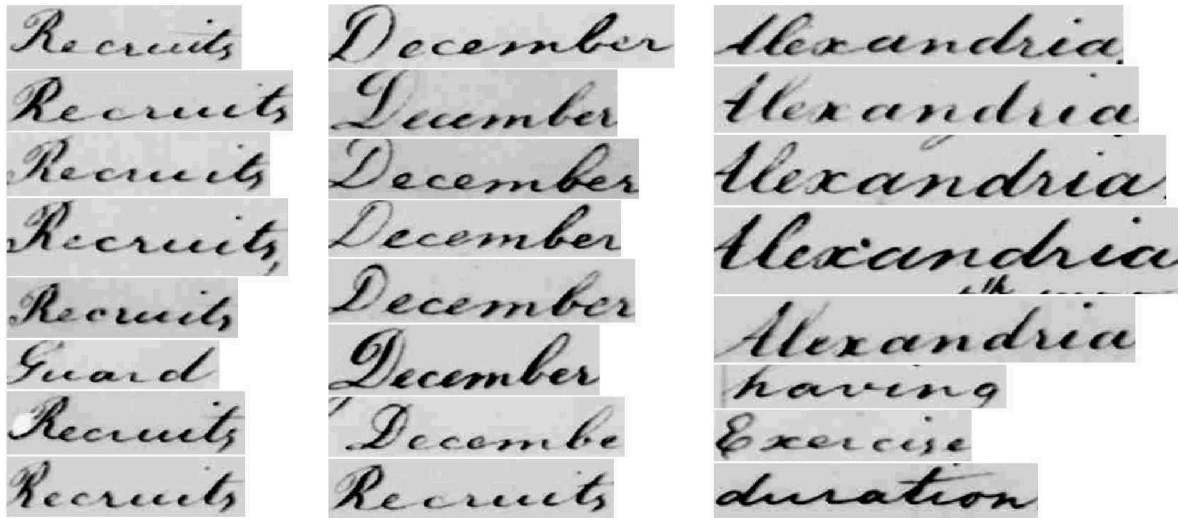 Recruits
Recruits
Recruits
Recruits,
Recruits
Guard
Recruits
Recruits
December
December
December
December
December
December
Decembe
Recruits
Alexandria,
Alexandria
Alexandria.
Alexandria
Alexandria
having
Exercise
duration